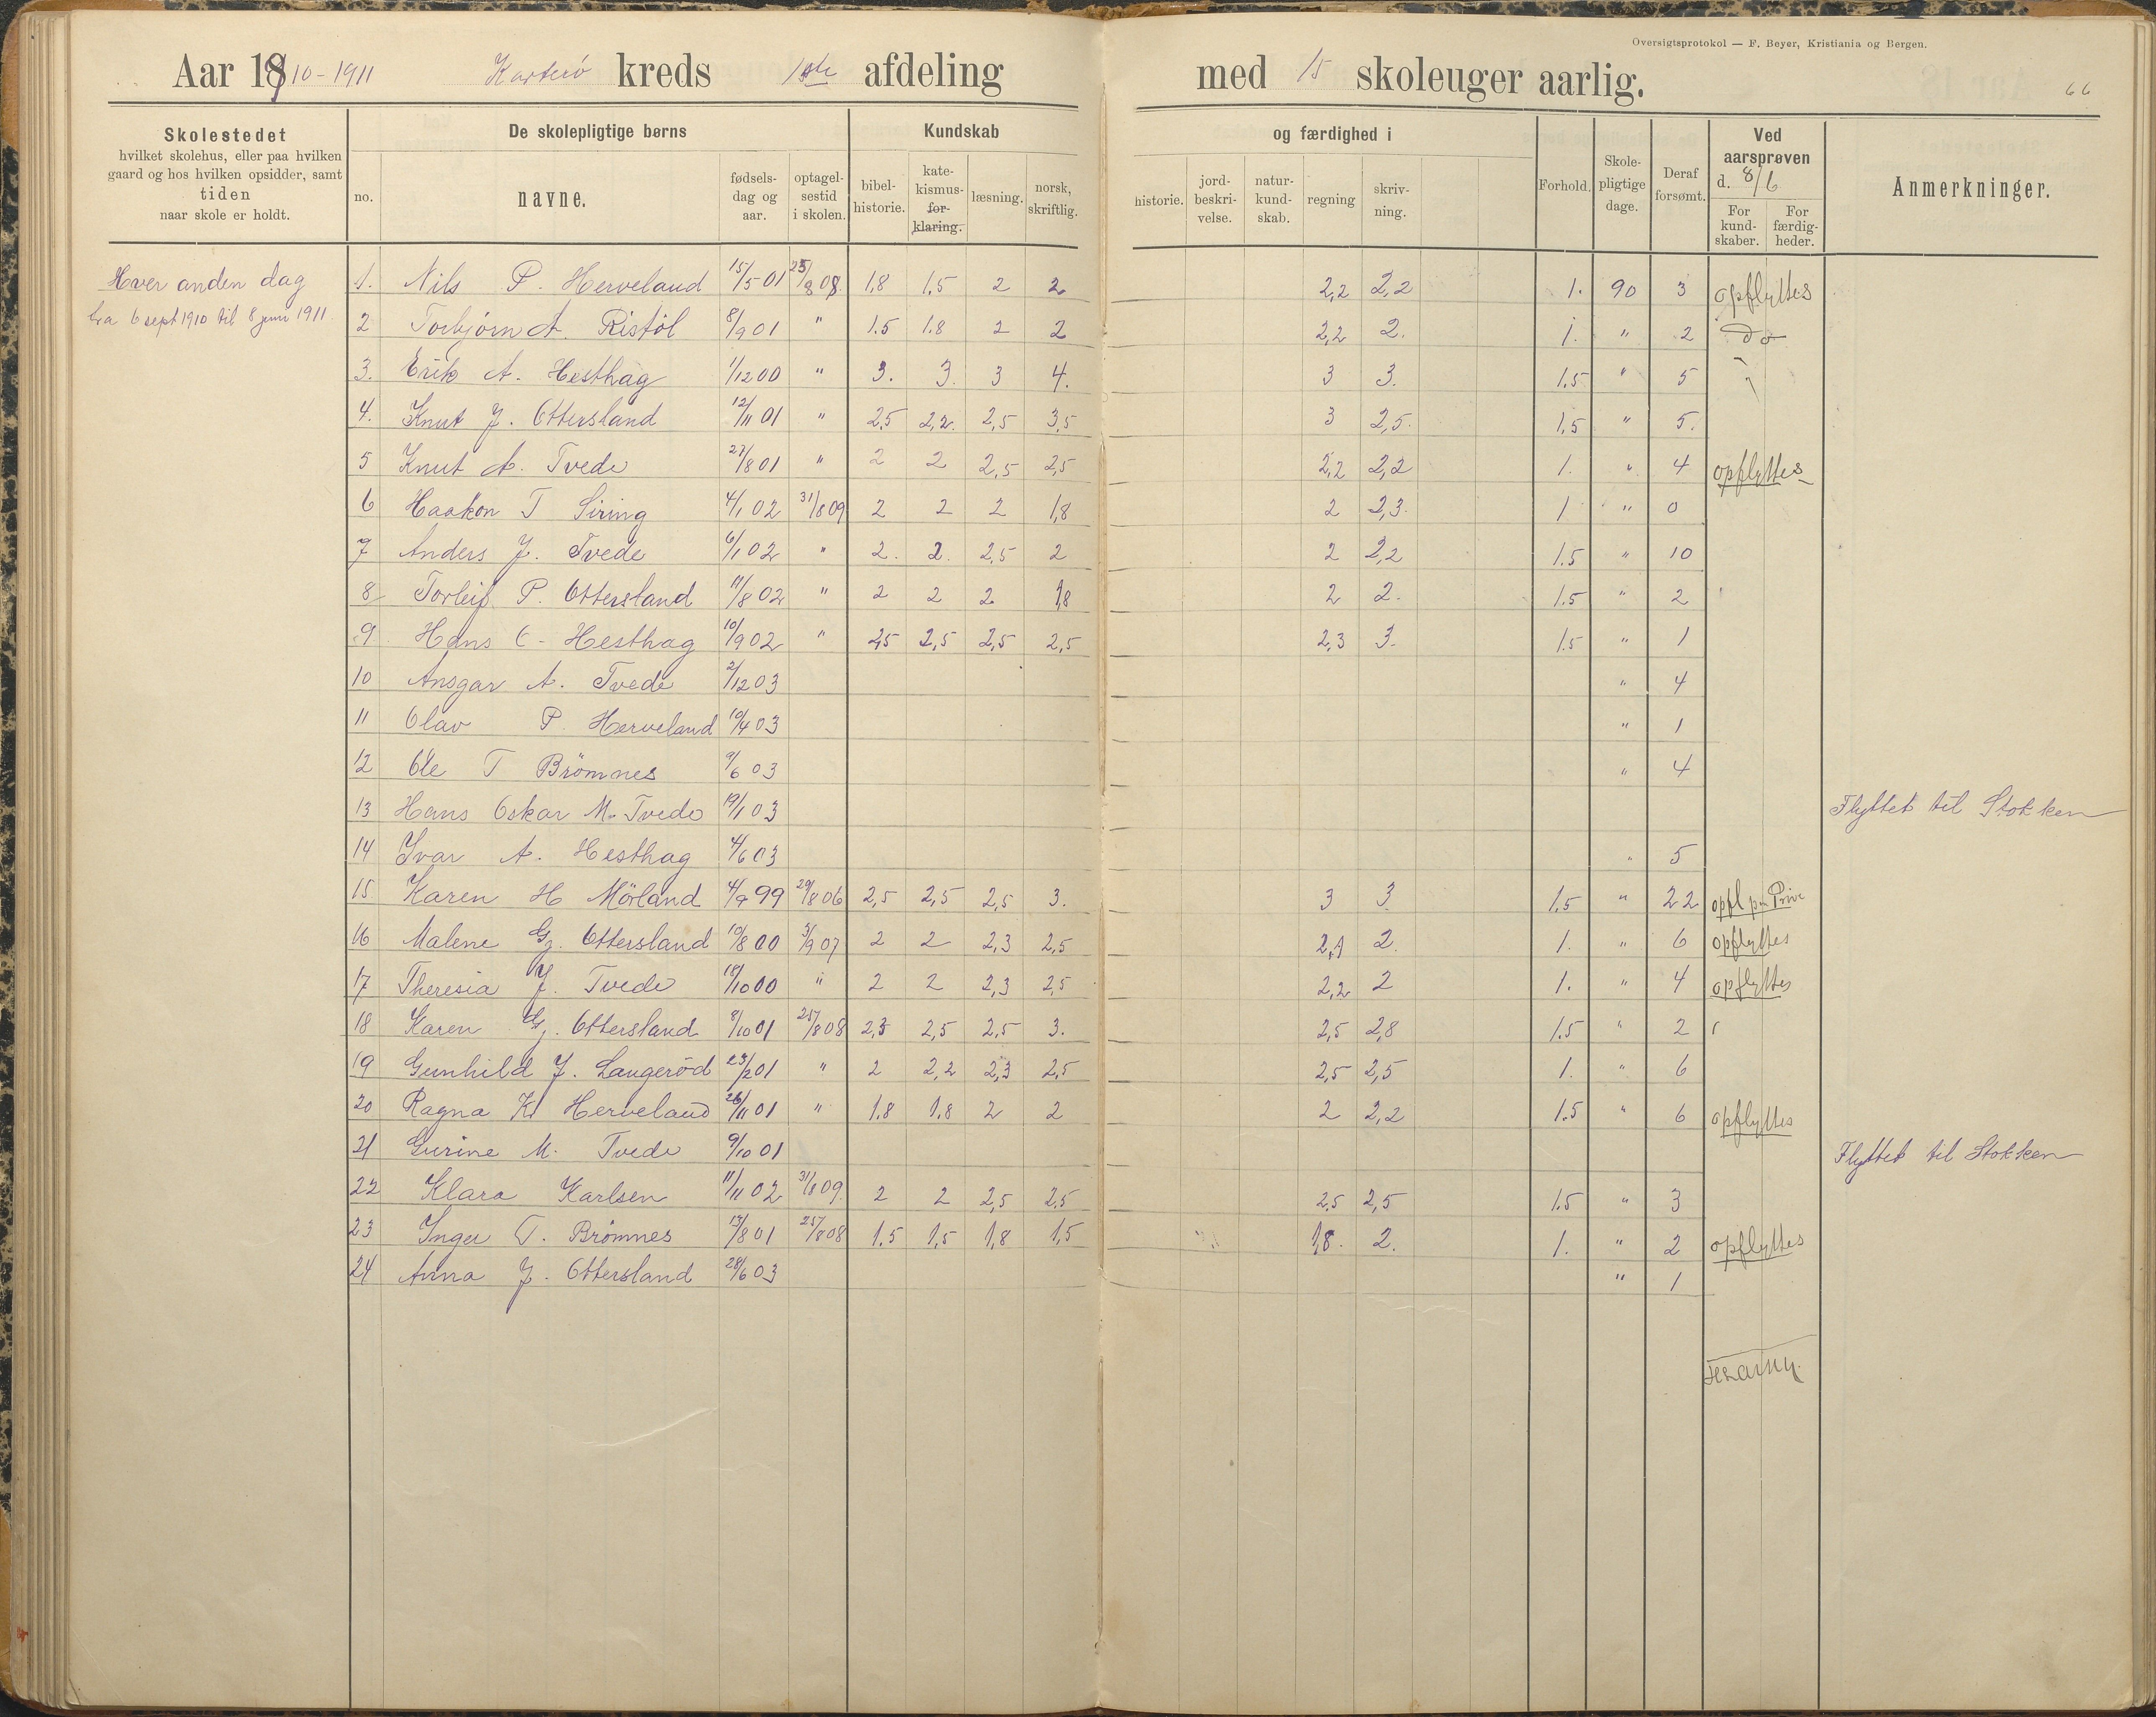 Oversigtsprotokol — F. Beyer, Kristiania og Bergen.
Aar 1910-1911 kreds 1ste afdeling med 15 skoleuger aarlig.
66
Skolestedet
hvilket skolehus, eller paa hvilken
gaard og hos hvilken opsidder, samt
tiden
naar skole er holdt.
De skolepligtige børns
no. navne. fødsels-dag og aar. optagel-sestid i skolen.
Kundskab og færdighed i
bibel-historie. kate-kismus-for-klaring. læsning. norsk, skriftlig. historie. jord-beskri-velse. natur-kund-skab. regning skriv-ning.
Forhold. Skole-pligtige dage. Deraf forsømt.
Ved aarsprøven d. 8/6
For kund-skaber. For færdig-heder.
Anmerkninger.
Hver anden dag
fra 6 sept 1910 til 8 juni 1911.
1. Nils P. Herveland 15/5 01 25/8 08. 1,8 1.5 2 2 2,2 2,2 1. 90 3 opflyttes
2 Torbjörn A. Ristöl 8/9 01 " 1.5 1.8 2 2 2,2 2. 1. " 2 do
3. Erik A. Hesthag 1/12 00 " 3. 3. 3 4. 3 3. 1.5 " 5 "
4. Knut J. Ottersland 12/11 01 " 2,5 2,2. 2,5 3,5 3 2,5. 1,5 " 5.
5 Knut A. Tvede 27/8 01 " 2 2 2,5 2,5 2,2 2,2 1. " 4 opflyttes
6 Haakon T Siring 4/1 02 31/8 09 2 2 2 1,8 2 2,3. 1 " 0
7 Anders J. Tvede 6/1 02 " 2. 2. 2,5 2 2 2,2 1.5 " 10
8 Torleif P. Ottersland 11/8 02 " 2 2 2 1,8 2 2. 1.5 " 2
9 Hans C - Hesthag 10/9 02 " 2,5 2,5 2,5 2,5 2,3 3. 1.5 " 1
10 Ansgar A. Tvede 2/12 03 " 4
11 Olav P. Herveland 10/4 03 " 1
12 Ole T Brömnes 9/6 03 " 4
13 Hans Oskar M. Tvede 19/1 03 Flyttet til Stokken
14 Ivar A. Hesthag 4/6 03 " 5
15 Karen H Mörland 4/9 99 29/8 06 2,5 2,5 2,5 3. 3 3. 1.5 " 22 opfl
16 Malene Gj. Ottersland 10/8 00 3/9 07 2 2 2,3 2,5 2,1 2. 1. " 6 opflyttes
17 Theresia J. Tvede 18/10 00 " 2 2 2,3 2,5 2,2 2 1. " 4 opflyttes
18 Karen Gj. Ottersland 8/10 01 25/8 08 2,3 2,5 2,5 3. 2,5 2,8 1.5 " 2
19 Gunhild J. Langeröd 23/2 01 " 2 2,2 2,3 2,5 2,5 2,5 1. " 6
20 Ragna K. Herveland 26/11 01 " 1.8 1.8 2 2 2 2,2 1.5 " 6 opflyttes
21 Gurine M. Tvede 9/10 01 Flyttet til Stokken
22 Klara Karlsen 11/11 02 31/8 09. 2 2 2,5 2,5 2,5 2,5 1.5 " 3
23 Inger T. Brömnes 13/8 01 25/8 08 1.5 1,5 1,8 1,5 1,8. 2. 1. " 2 opflyttes
24 Anna J. Ottersland 28/6 03 " 1